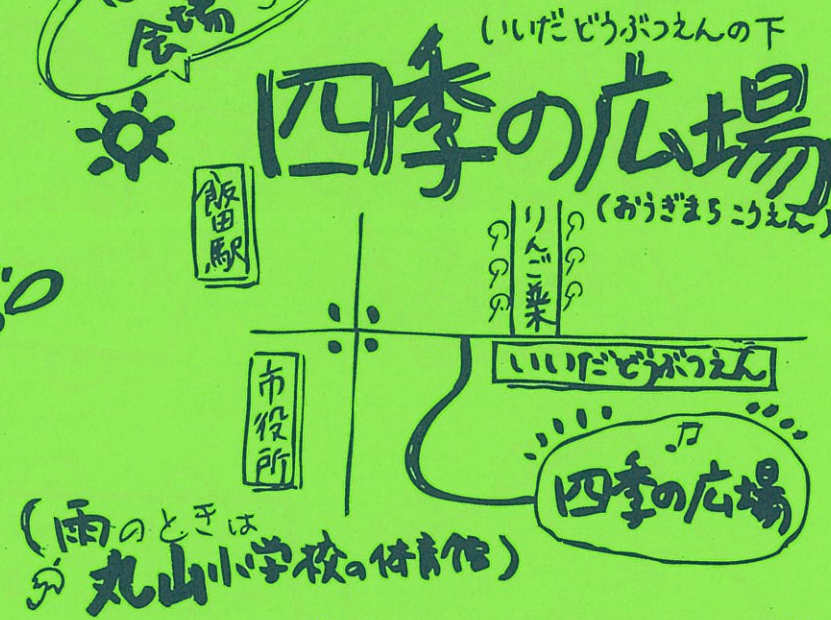 会場
いいだどうぶつえんの下
四季の広場
(おうぎまちこうえん)
飯田駅
りんご並木
市役所
いいだどうぶつえん
四季の広場
(雨のときは
丸山小学校の体育館)